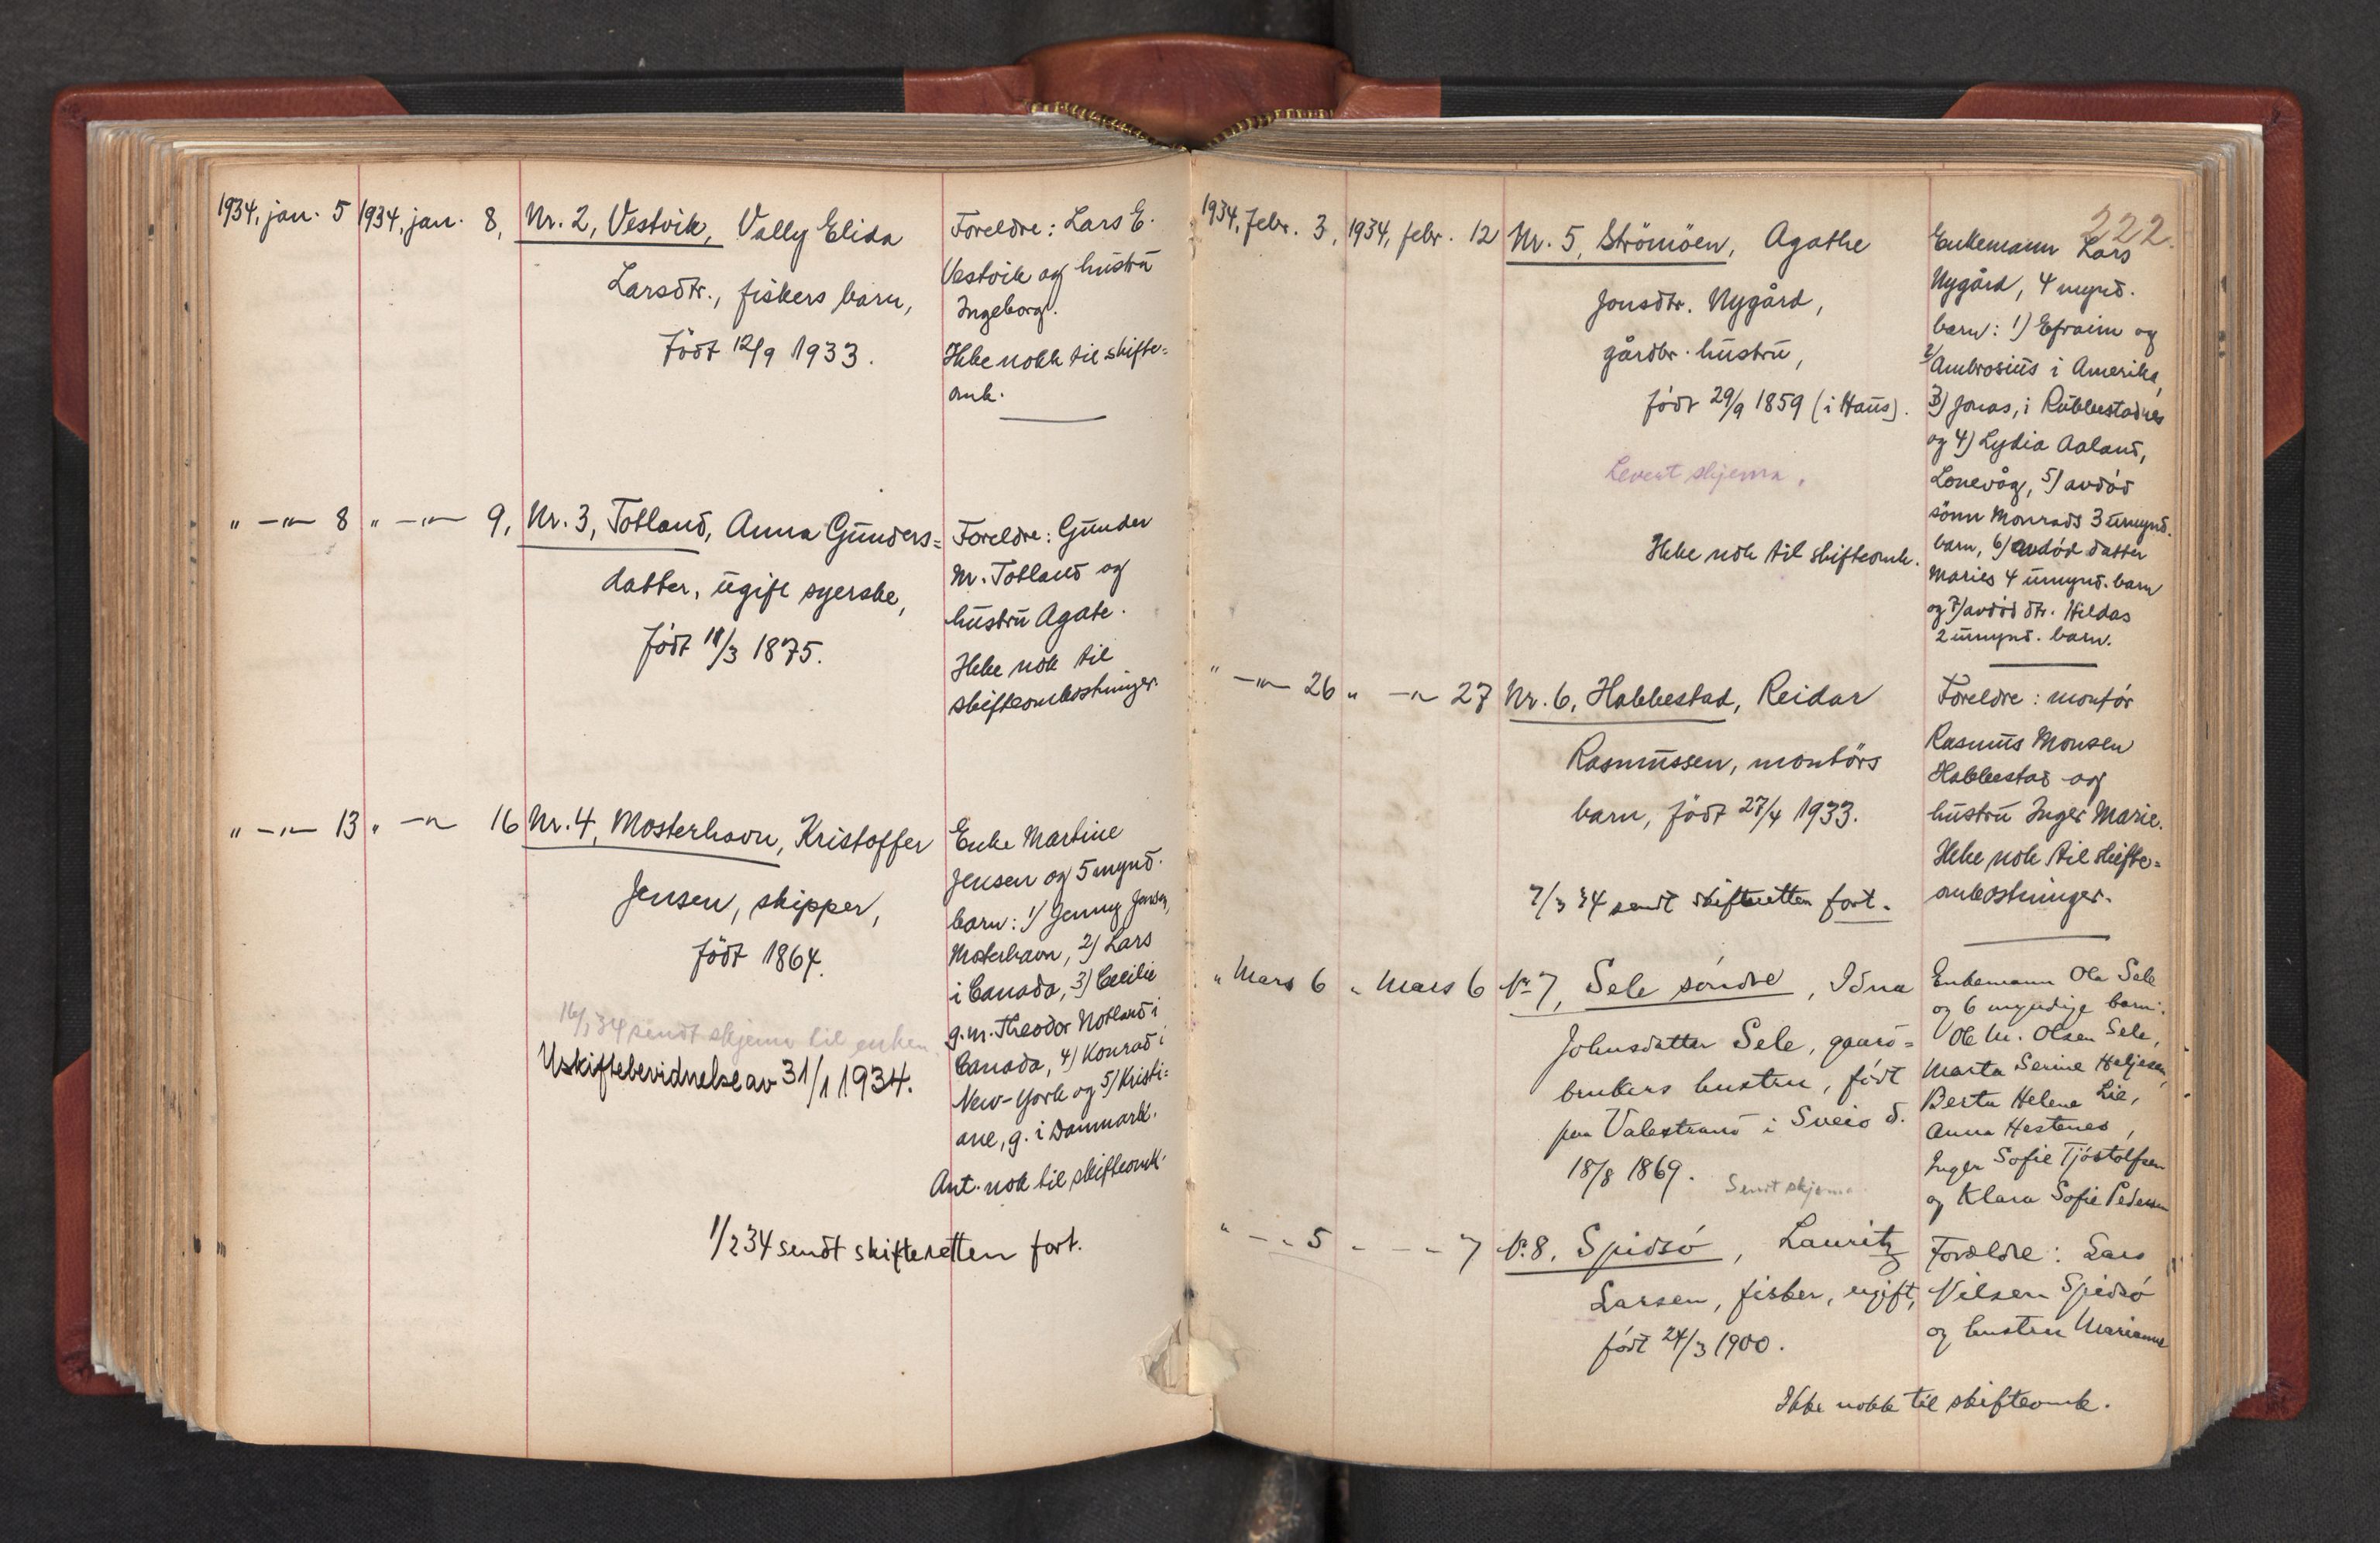 1934, jan. 5 1934, jan. 8, Nr. 2, Vestvik, Vally Elida
Larsdtr., fiskers barn,
Född 12/9 1933.
Foreldre: Lars E.
Vestvik og hustru
Ingeborg.
Ikke nokk til skifte-
omk.
" —"— 8 " —"— 9, Nr. 3, Totland, Anna Gunders=
datter, ugift syerske,
født 18/3 1875.
Foreldre: Gunder
M. Totland og
hustru Agate.
Ikke nok til
skifteomkostninger.
" —"— 13 " —"— 16 Nr. 4, Mosterhavn, Kristoffer
Jensen, skipper,
født 1864.
16/1 34 sendt skjema til enken.
Uskiftebevidnelse av 31/1 1934.
Enke Martine
Jensen og 5 mynd.
barn: 1) Jenny Jensen,
Mosterhavn, 2) Lars
i Canada, 3) Cecilie
g.m. Theodor Notland i
Canada, 4) Konrad i
New-York og 5) Kristi=
ane, g. i Danmark.
Ant. nok til skifteomk.
1/2 34 sendt skifteretten fort.
222.
1934, febr. 3, 1934, febr. 12 Nr. 5, Strömöen, Agathe
Jonsdtr. Nygård,
gårdbr. hustru,
født 29/9 1859 (i Haus).
Levert skjema.
Ikke nok til skifteomk.
Enkemann Lars
Nygård, 4 mynd.
barn: 1) Efraim og
2) Ambrosius i Amerika,
3) Jonas, i Rubbestadnes
og 4) Lydia Aaland,
Lonevåg, 5) avdöd
sönn Monrads 3 umynd.
barn, 6) avdöd datter
Maries 4 umynd. barn
og 7) avdöd dtr. Hildas
2 umynd. barn.
" —"— 26 " —"— 27 Nr. 6, Habbestad, Reidar
Rasmussen, montörs
barn, født 27/4 1933.
7/3 34 sendt skifteretten fort.
Foreldre: montör
Rasmus Monsen
Habbestad og
hustru Inger Marie.
Ikke nok til skifte=
omkostninger.
" Mars 6 " Mars 6 Nr. 7, Sele söndre, Idna
Johnsdatter Sele, gaard=
brukers hustru, født
paa Valestrand i Sveio d.
18/8 1869. Sendt skjema.
Enkemann Ola Sele
og 6 myndige barn:
Ole M. Olsen Sele,
Marta Serine Haljesen,
Berta Helene Lie,
Anna Hestenes,
Inger Sofie Tjöstolfsen
og Klara Sofie Pedersen
" - - 5 " - - 7 Nr. 8, Spidsö, Lauritz
Larsen, fisker, ugift,
født 24/3 1900.
Forældre: Lars
Nilsen Spidsö
og hustru Marianne
Ikke nokk til skifteomk.